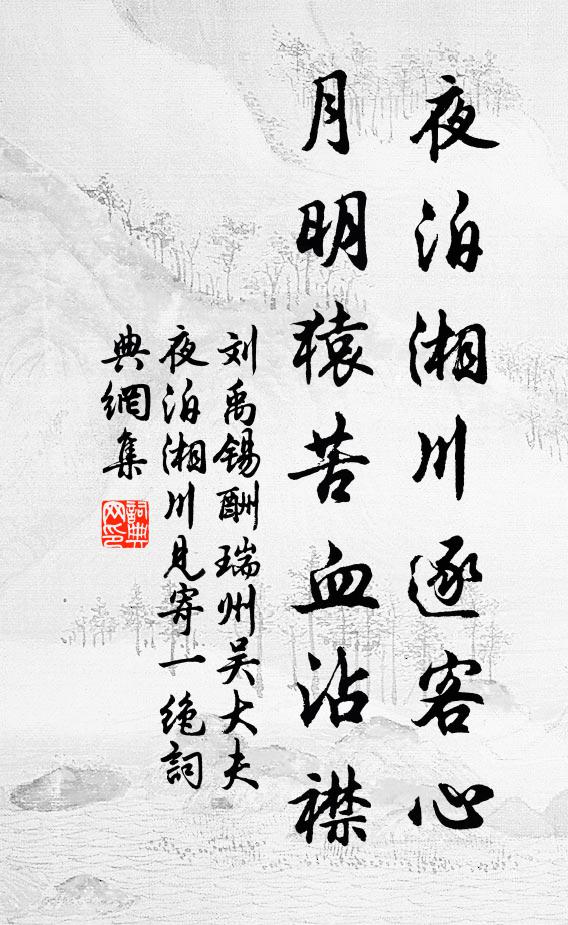 夜泊湘川逐客心
月明猿苦血沾襟
刘禹锡酬瑞州吴大夫
夜泊湘川见寄一绝詞
典網集
詞典
网印